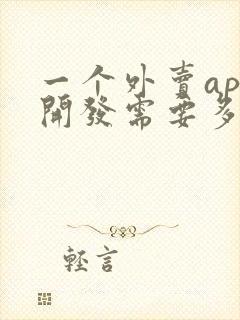 一个外賣ap
開發需要多
輕言